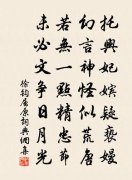 托興妃嬪疑褻嫚
幻言神怪似荒唐
若無一點精忠節
未必文爭日月光
徐鈞屈原詞典網集